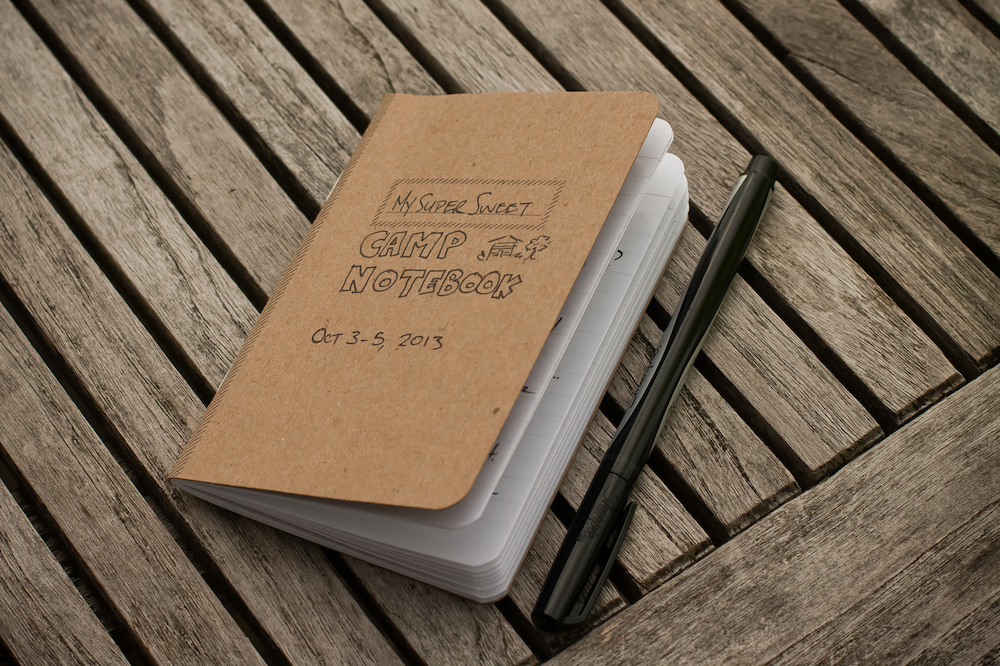 My Super Sweet
CAMP
NOTEBOOK
Oct 3-5, 2013